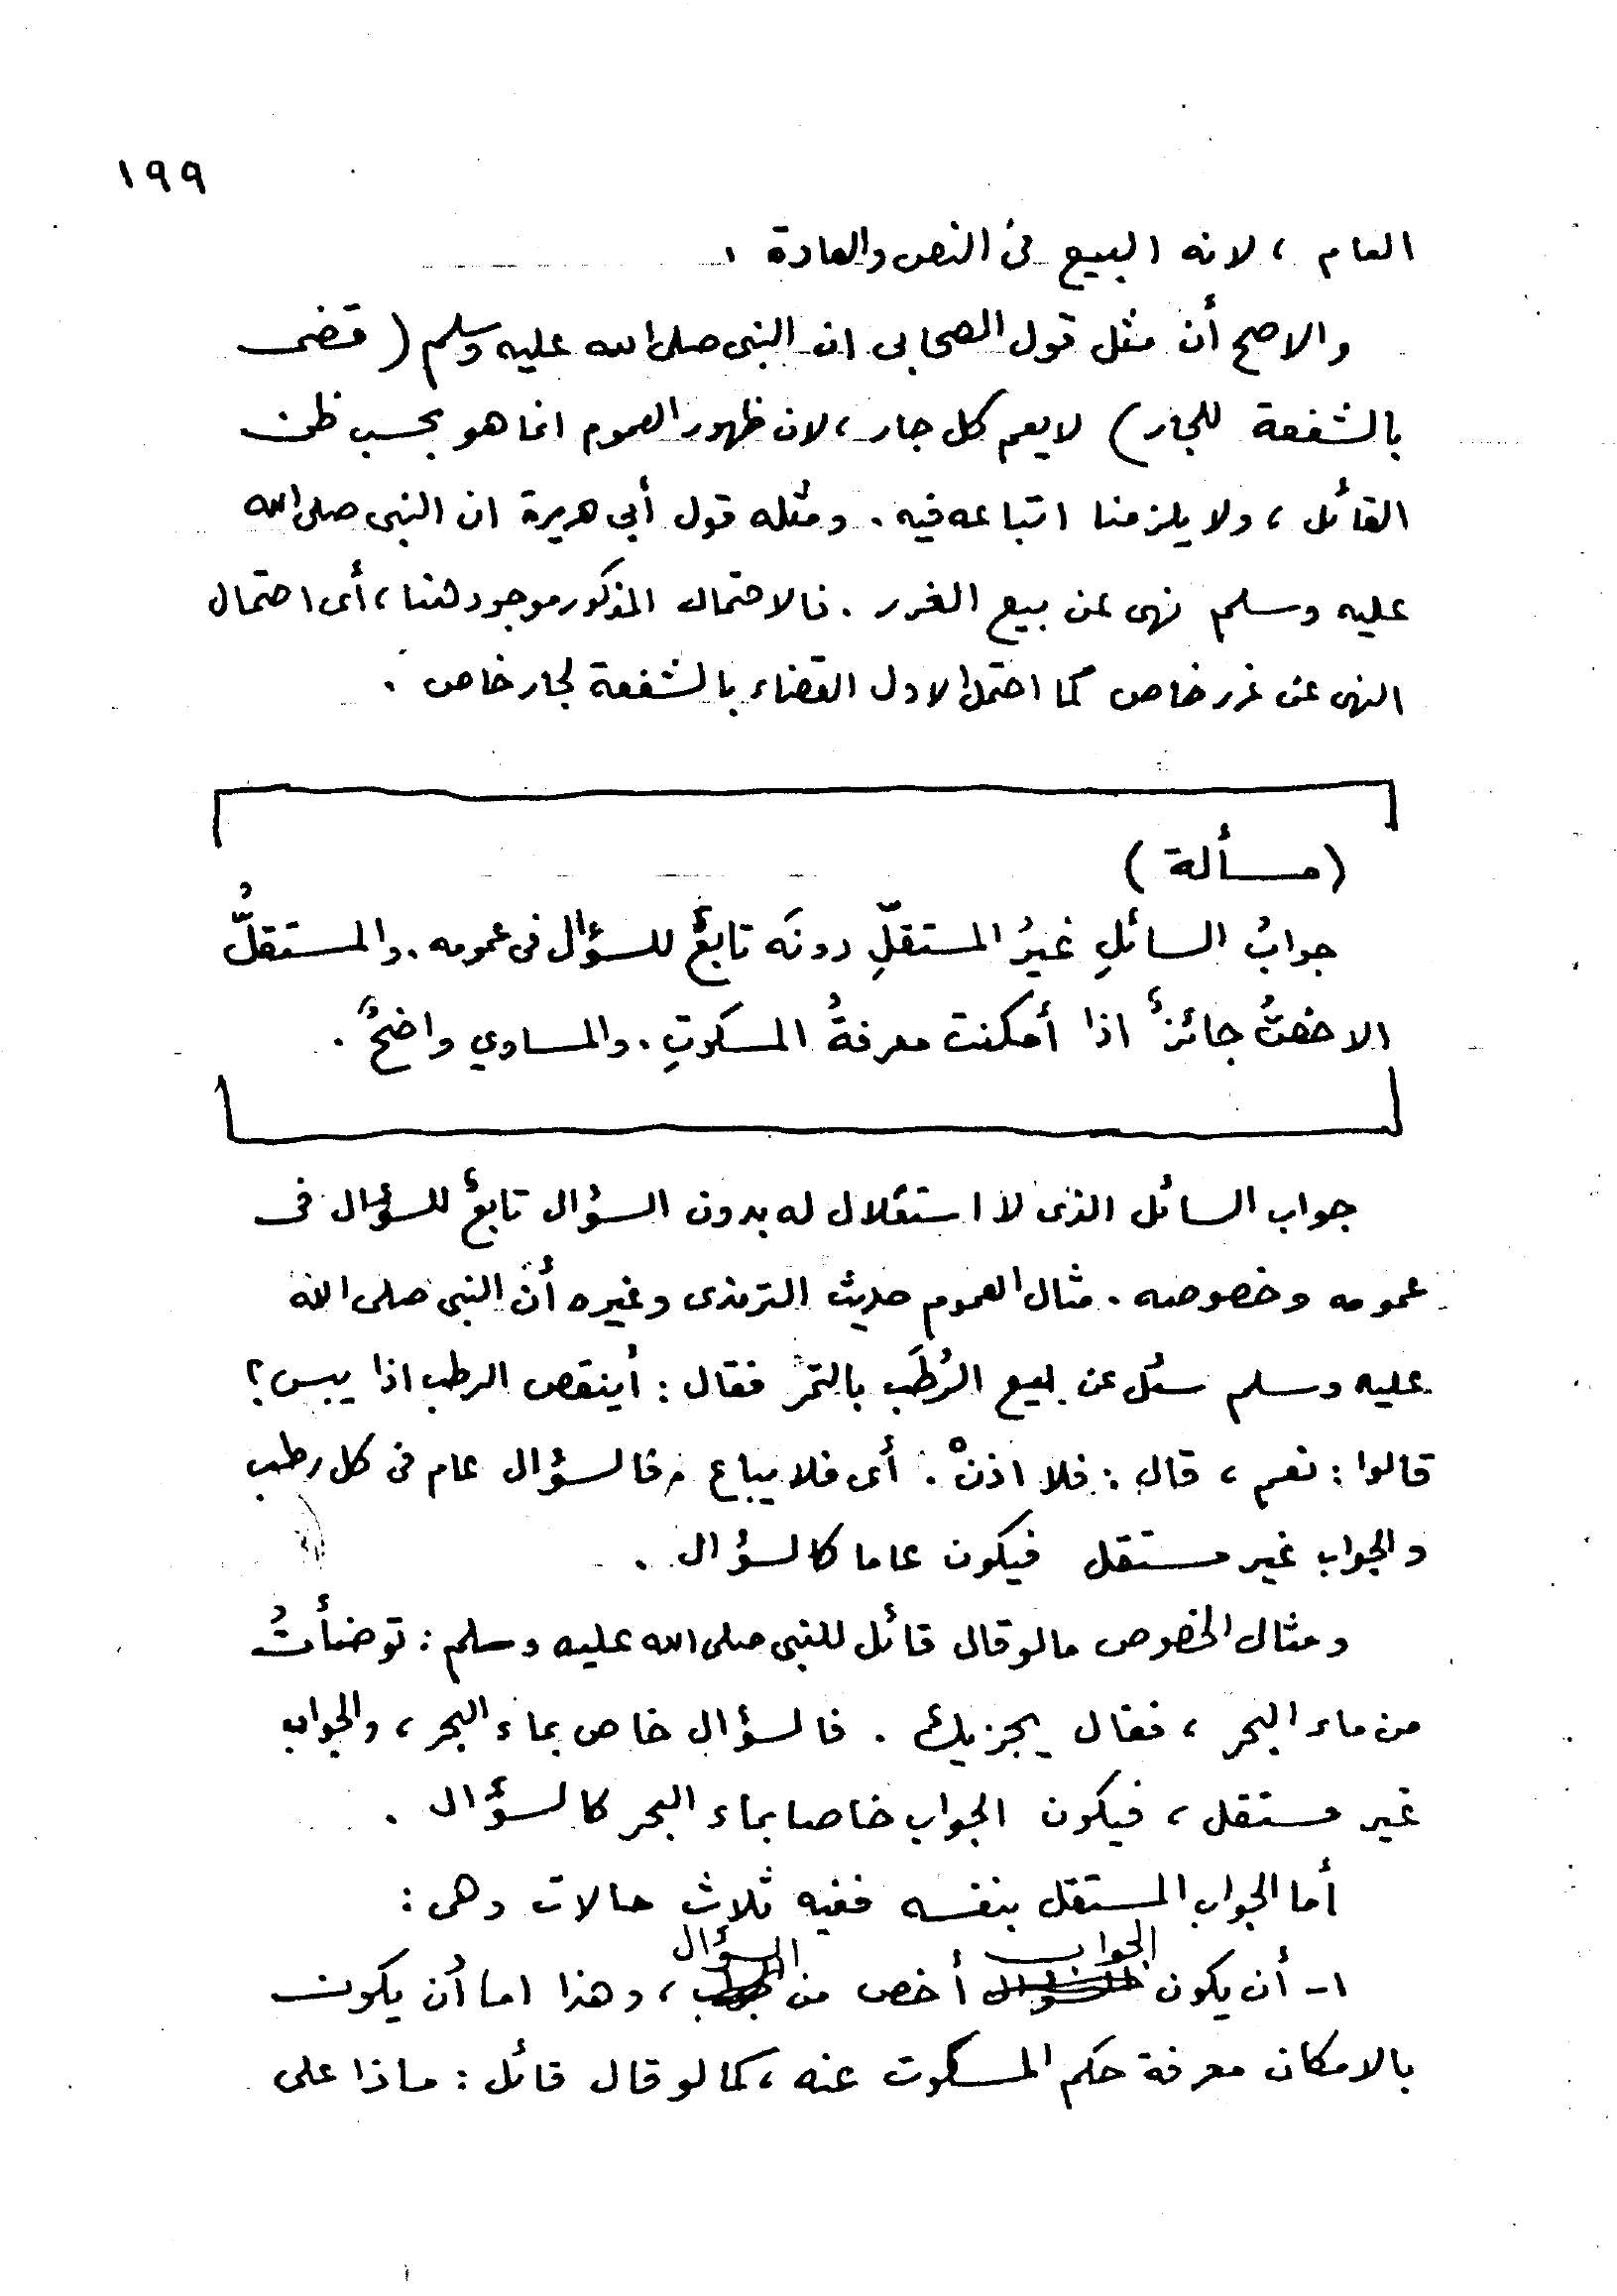 ١٩٩
العام ، لانه البيع فى النص والعادة .
والاصح أن مثل قول الصحابى ان النبى صلى الله عليه وسلم ( قضى
بالشفعة للجار ) لا يعم كل جار ، لان ظهور العموم انما هو بحسب ظن
القائل ، ولا يلزمنا اتباعه فيه . ومثله قول أبى هريرة ان النبى صلى الله
عليه وسلم نهى عن بيع الغرر . فالاحتمال المذكور موجود هنا ، أى احتمال
النهى عن غرر خاص كما احتمل الاول القضاء بالشفعة لجار خاص .
( مسألة )
جوابُ السائلِ غيرُ المستقلِّ دونَه تابعٌ للسؤال فى عمومه . والمستقلُّ
الاخصُّ جائزٌ اذا أمكنت معرفةُ المسكوتِ . والمساوي واضحٌ .
جواب السائل الذى لا استقلال له بدون السؤال تابعٌ للسؤال فى
عمومه وخصوصه . مثال العموم حديث الترمذى وغيره أن النبى صلى الله
عليه وسلم سئل عن بيع الرُطَب بالتمر فقال : أينقص الرطب اذا يبس ؟
قالوا : نعم ، قال : فلا اذنْ . أى فلا يباع . فالسؤال عام فى كل رطب
والجواب غير مستقل فيكون عاما كالسؤال .
ومثال الخصوص مالو قال قائل للنبى صلى الله عليه وسلم : توضأتُ
من ماء البحر ، فقال يجزيك . فالسؤال خاص بماء البحر ، والجواب
غير مستقل ، فيكون الجواب خاصا بماء البحر كالسؤال .
أما الجواب المستقل بنفسه ففيه ثلاث حالات وهى :
١- أن يكون الجواب أخص من السؤال ، وهذا اما أن يكون
بالامكان معرفة حكم المسكوت عنه ، كما لو قال قائل : ماذا على